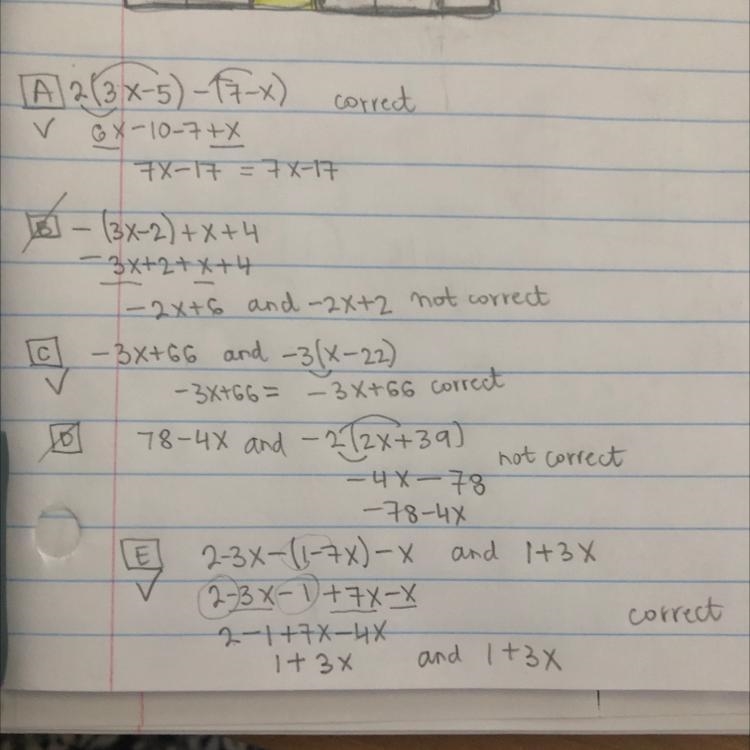 A 2(3x-5)-(7-x) correct
✓ 6x-10-7+x
7x-17 = 7x-17
B -(3x-2)+x+4
-3x+2+x+4
-2x+6 and -2x+2 not correct
C -3x+66 and -3(x-22)
✓ -3x+66 = -3x+66 correct
D 78-4x and -2(2x+39)
not correct
-4x-78
-78-4x
E 2-3x-(1-7x)-x and 1+3x
✓ 2-3x-1+7x-x
correct
2-1+7x-4x
1+3x and 1+3x